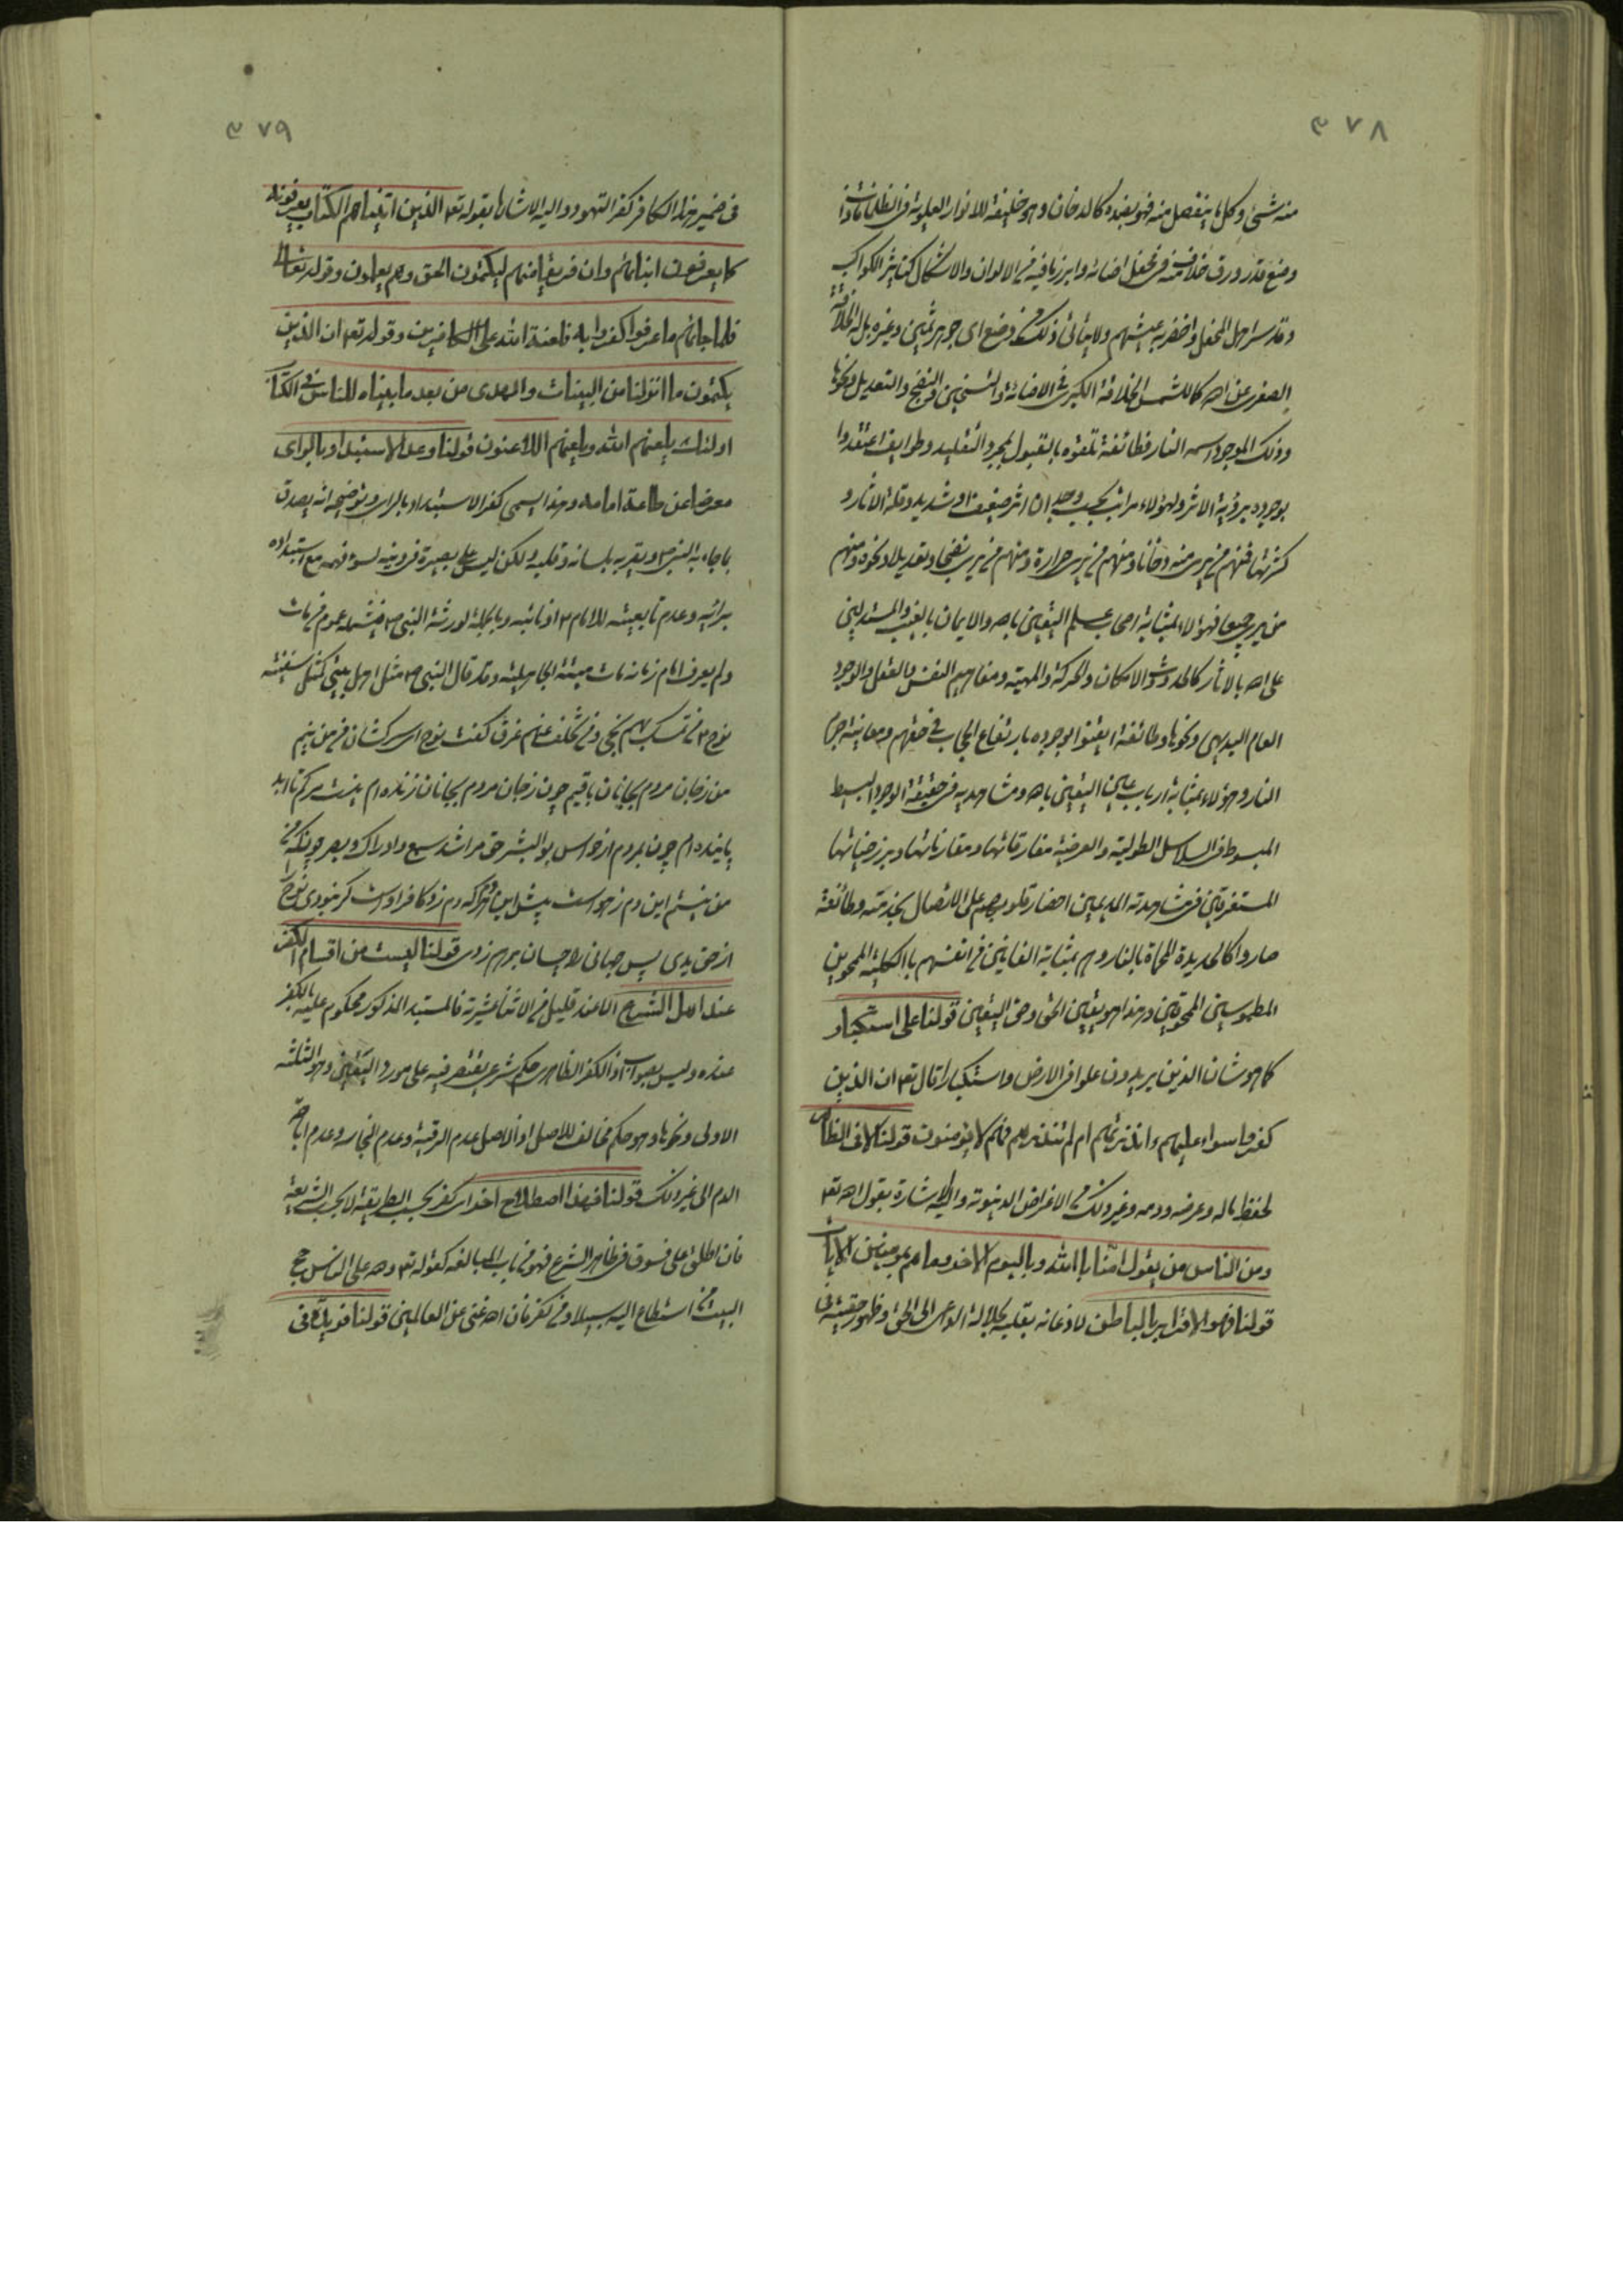 ٣٧٨
منه شیئ وکل ما ینفصل منه فهو بعنده کالدخان وهو خلیفة الانوار العلویة فی الظلمات
وقد سر اهل المحفل واخضر به عیشهم ولا یتأتی ذلک وضع ای جوهر ثمین وغیره بل له الخلافة
الصغری عن اهه کالشمس الخلافة الکبری فی الاضائة والتسخین والنضج والتعدیل ونحوها
وذلک الموجود اسمه النار فطائفة تلقوه بالقبول بمجرد التقلید وطوایف اعتقدوا
بوجوده برؤیة الاثر ولهؤلاء مراتب بحسب وجدان اثر ضعیف او شدید وقلة الاثار و
کثرتها فمنهم من یری منه دخانا ومنهم من یری حرارة ومنهم من یری نضجا وتعدیلا ونحوه ومنهم
من یری جمیعها فهؤلاء بمثابة اصحاب علم الیقین باهه والایمان بالغیب والمستدلین
علی اهه بالاثار کالحدوث والامکان والحرکة والمهیة ومفاهیم النفس والعقل والوجود
العام البدیهی ونحوها وطائفة ایقنوا بوجوده بارتفاع الحجاب فی حقهم ومعاینة جرم
النار وهؤلاء بمثابة ارباب عین الیقین باهه ومشاهدیه فی حقیقة الوجود البسیط
المبسوط فی السلاسل الطولیة والعرضیة مفارقاتها ومقارناتها وبرزخیاتها
المستغرقین فی مشاهدته الدیمین احضار قلوبهم علی الاتصال بخدمته وطائفة
صاروا کالحدیدة المحماة بالنار وهم بمثابة الفانین فی انفسهم بالکلیة الممحوین
المطموسین الممحوقین وهذا هو یقین الحق وحق الیقین قولنا علی استکبار
کما هو شان الذین یریدون علوا فی الارض واستکبارا قال تع ان الذین
کفروا سواء علیهم ءانذرتهم ام لم تنذرهم فهم لا یؤمنون قولنا لا فی الظاهر
لحفظ ماله وعرضه ودمه وغیر ذلک من الاغراض الدنیویة والیه الاشارة بقول اهه تع
ومن الناس من یقول امنا بالله وبالیوم الاخر وما هم بمومنین الایات
قولنا فهو الاقرار بالباطن لاذعانه بقلبه بجلالة الداعی الی الحق وظهور حقیته فی
٣٧٩
فی ضمیر هذا الکافر کفر التهود والیه الاشارة بقوله تع الذین اتیناهم الکتاب یعرفونه
کما یعرفون ابنائهم وان فریقا منهم لیکتمون الحق وهم یعلمون وقوله تعالی
فلما جائهم ما عرفوا کفروا به فلعنة الله علی الکافرین وقوله تع ان الذین
یکتمون ما انزلنا من البینات والهدی من بعد ما بیناه للناس فی الکتاب
اولئک یلعنهم الله ویلعنهم اللاعنون قولنا وعلی الاستبداد بالرای
معرضا عن طاعة امامه وهذا یسمی کفر الاستبداد بالرای وتوضیحه انه یصدق
بما جاء به النبی ص ویقر به بلسانه وقلبه ولکن لیس علی بصیرة فی دینه لسوء فهمه مع استبداده
برائیه وعدم تابعیته للامام ع او نائبه وبالجملة لورثة النبی ص فیشمله عموم من مات
ولم یعرف امام زمانه مات میتة الجاهلیة وقد قال النبی ص مثل اهل بیتی کمثل سفینة
نوح ع من تمسک بهم نجی ومن تخلف عنهم غرق گفت نوح ای سرکشان من من نیم
من ز جان مردم بجانان باقیم چون ز جان مردم بجانان زنده ام نیست مرگم تا ابد
پاینده ام چون بمردم از حواس بو البشر حق مرا شد سمع وادراک وبصر چونکه
من نیستم این دم ز هوست پیش این هرکه دم زد کافر اوست گر نبودی نوح را
از حق یدی پس جهانی را چسان برهم زدی قولنا لیست من اقسام الکفر
عند اهل الشرع الا عند قلیل من الاثنا عشریة فالمستبد المذکور محکوم علیه بالکفر
عنده ولیس بصواب اذ الکفر الظاهری حکم شرعی یقتصر فیه علی مورد الیقین وهو الثلثة
الاولی ونحوها وهو حکم مخالف للاصل اذ الاصل عدم الرقیة وعدم النجاسة وعدم اباحة
الدم الی غیر ذلک قولنا فبهذا اصطلاح اخر ای کفر بحسب الطریقة لا بحسب الشریعة
فان اطلق علی فسوق فی ظاهر الشرع فهو من باب المبالغة کقوله تع وهه علی الناس حج
البیت من استطاع الیه سبیلا ومن کفر فان اهه غنی عن العالمین قولنا